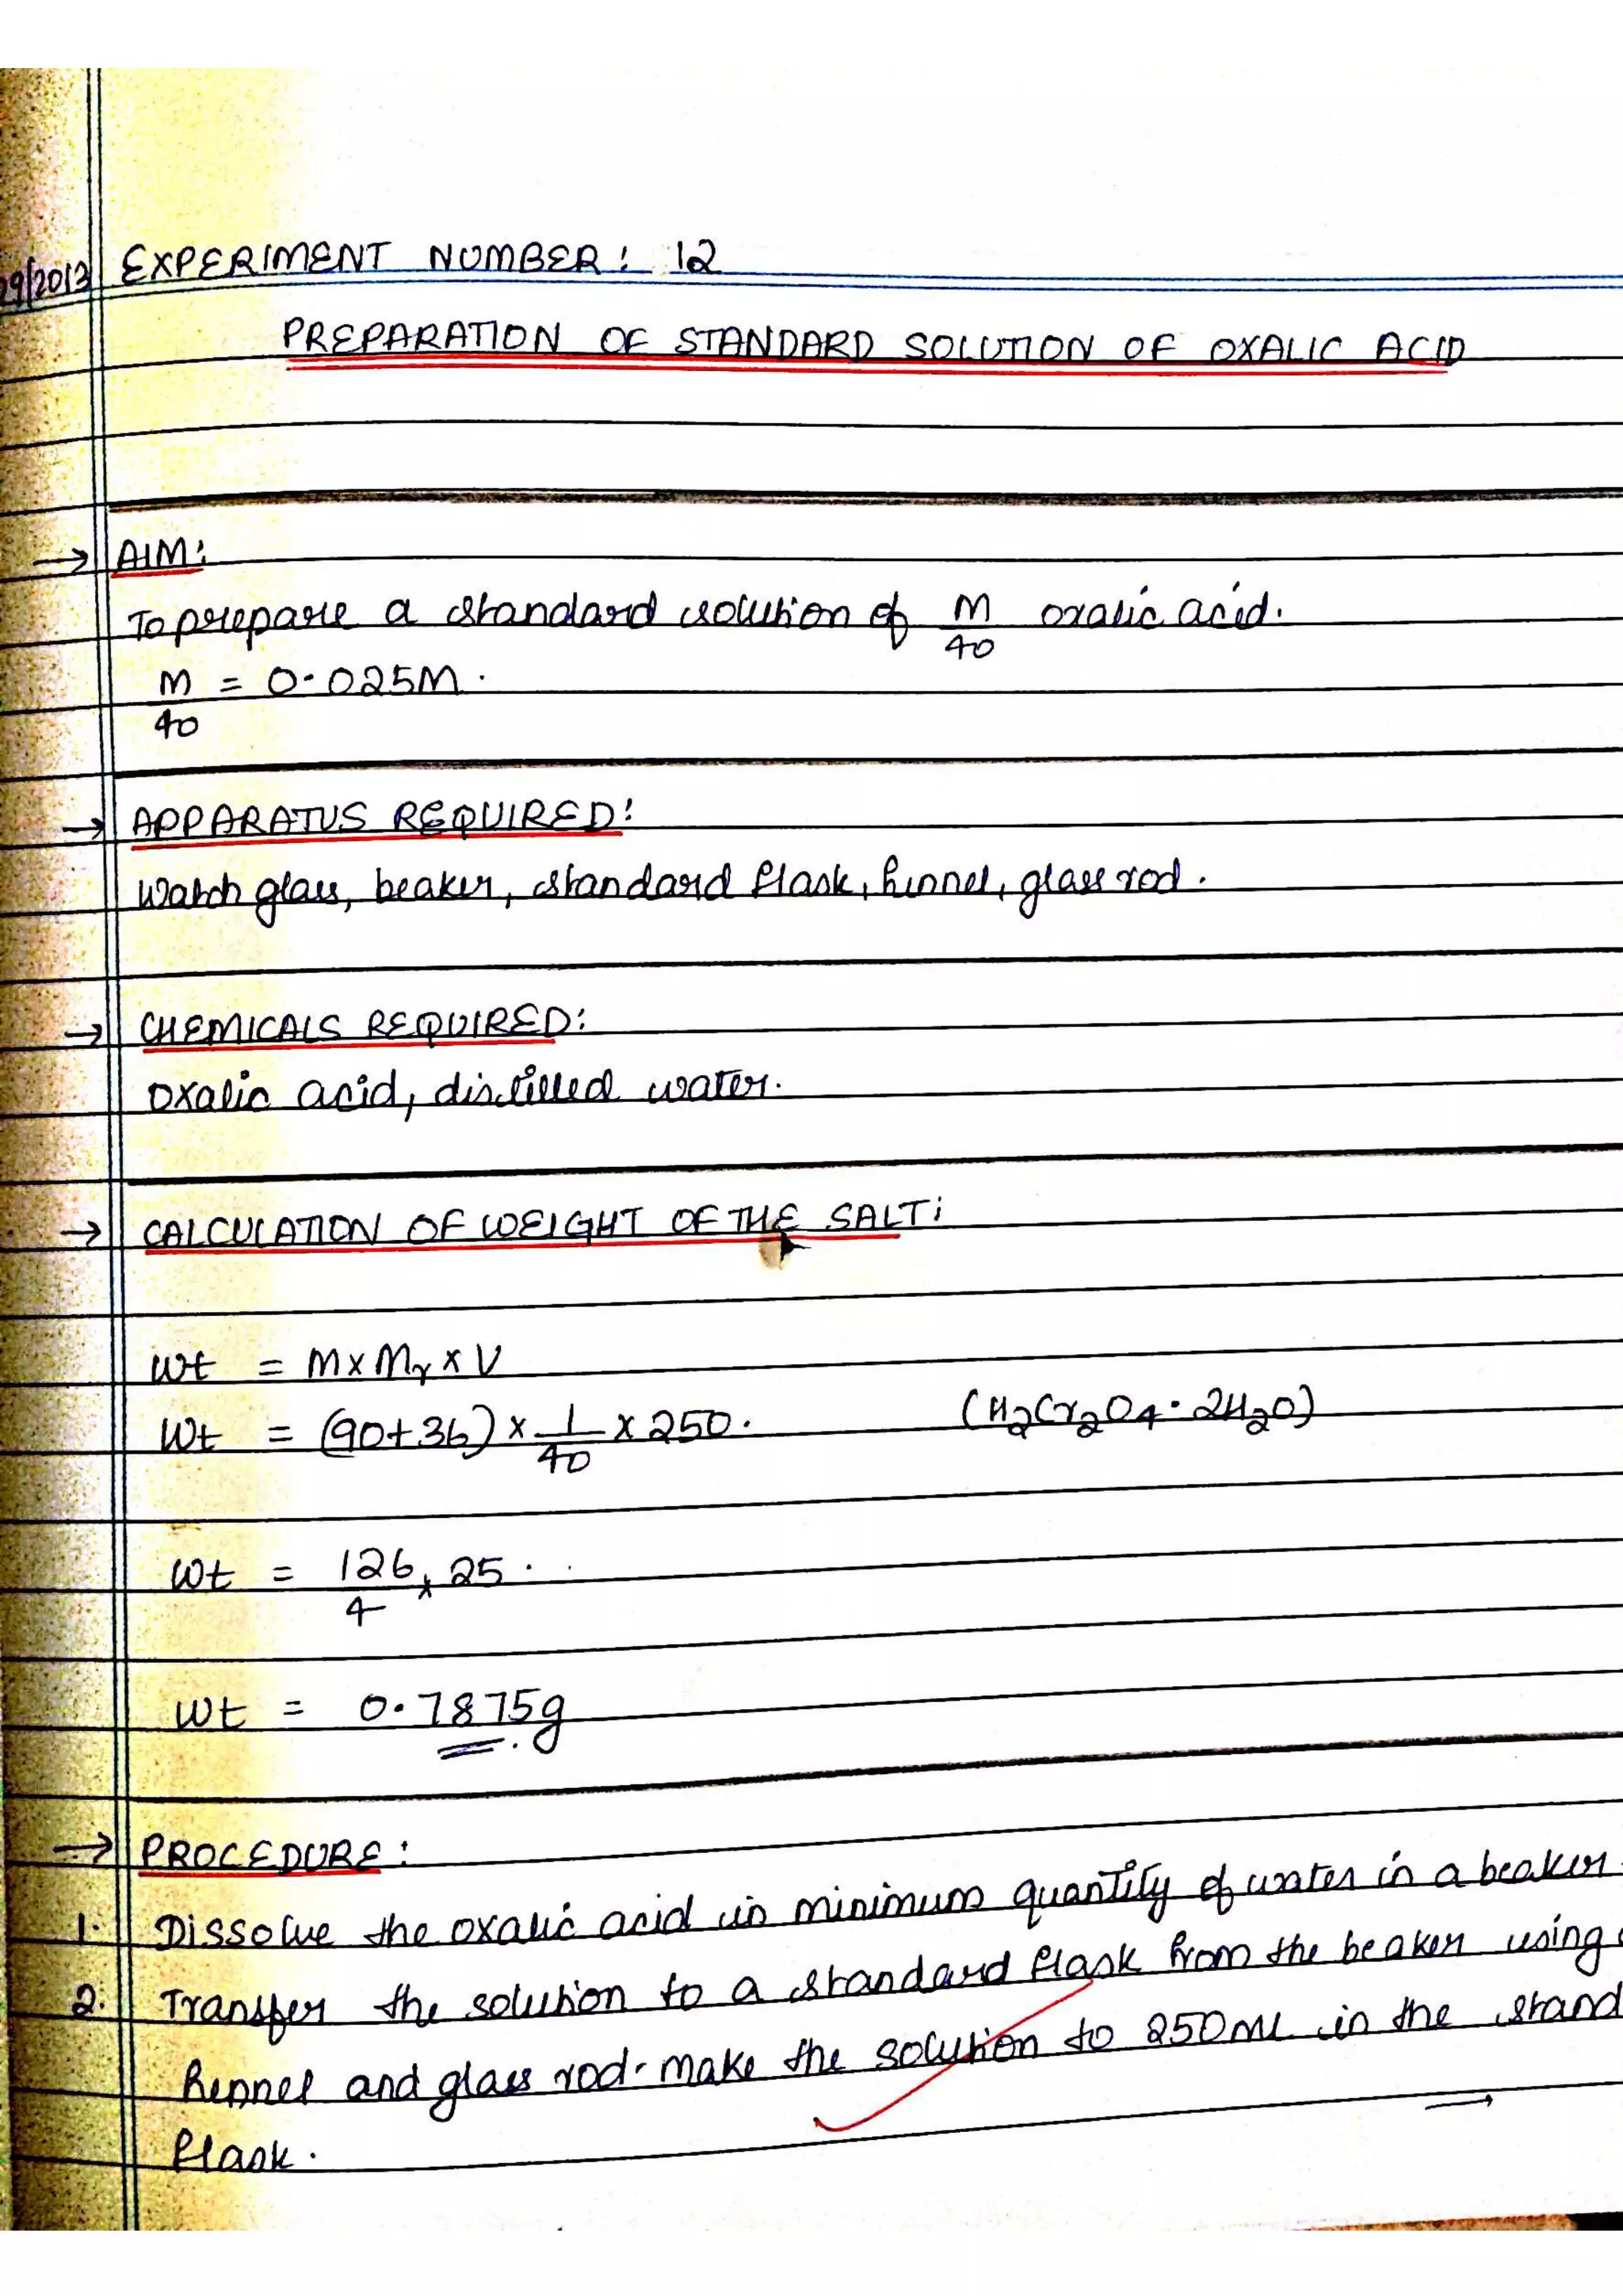 9/2013 EXPERIMENT NUMBER: 12
PREPARATION OF STANDARD SOLUTION OF OXALIC ACID
→ AIM:
To prepare a standard solution of M/40 oxalic acid.
M/40 = 0.025M.
→ APPARATUS REQUIRED:
Watch glass, beaker, standard flask, funnel, glass rod.
→ CHEMICALS REQUIRED:
Oxalic acid, distilled water.
→ CALCULATION OF WEIGHT OF THE SALT:
Wt = M x Mr x V
Wt = (90+36) x 1/40 x 250. (H2Cr2O4 · 2H2O)
Wt = 126/4 x 25.
Wt = 0.7875g
→ PROCEDURE:
1. Dissolve the oxalic acid in minimum quantity of water in a beaker
2. Transfer the solution to a standard flask from the beaker using
funnel and glass rod. Make the solution to 250ml in the stand
flask. →